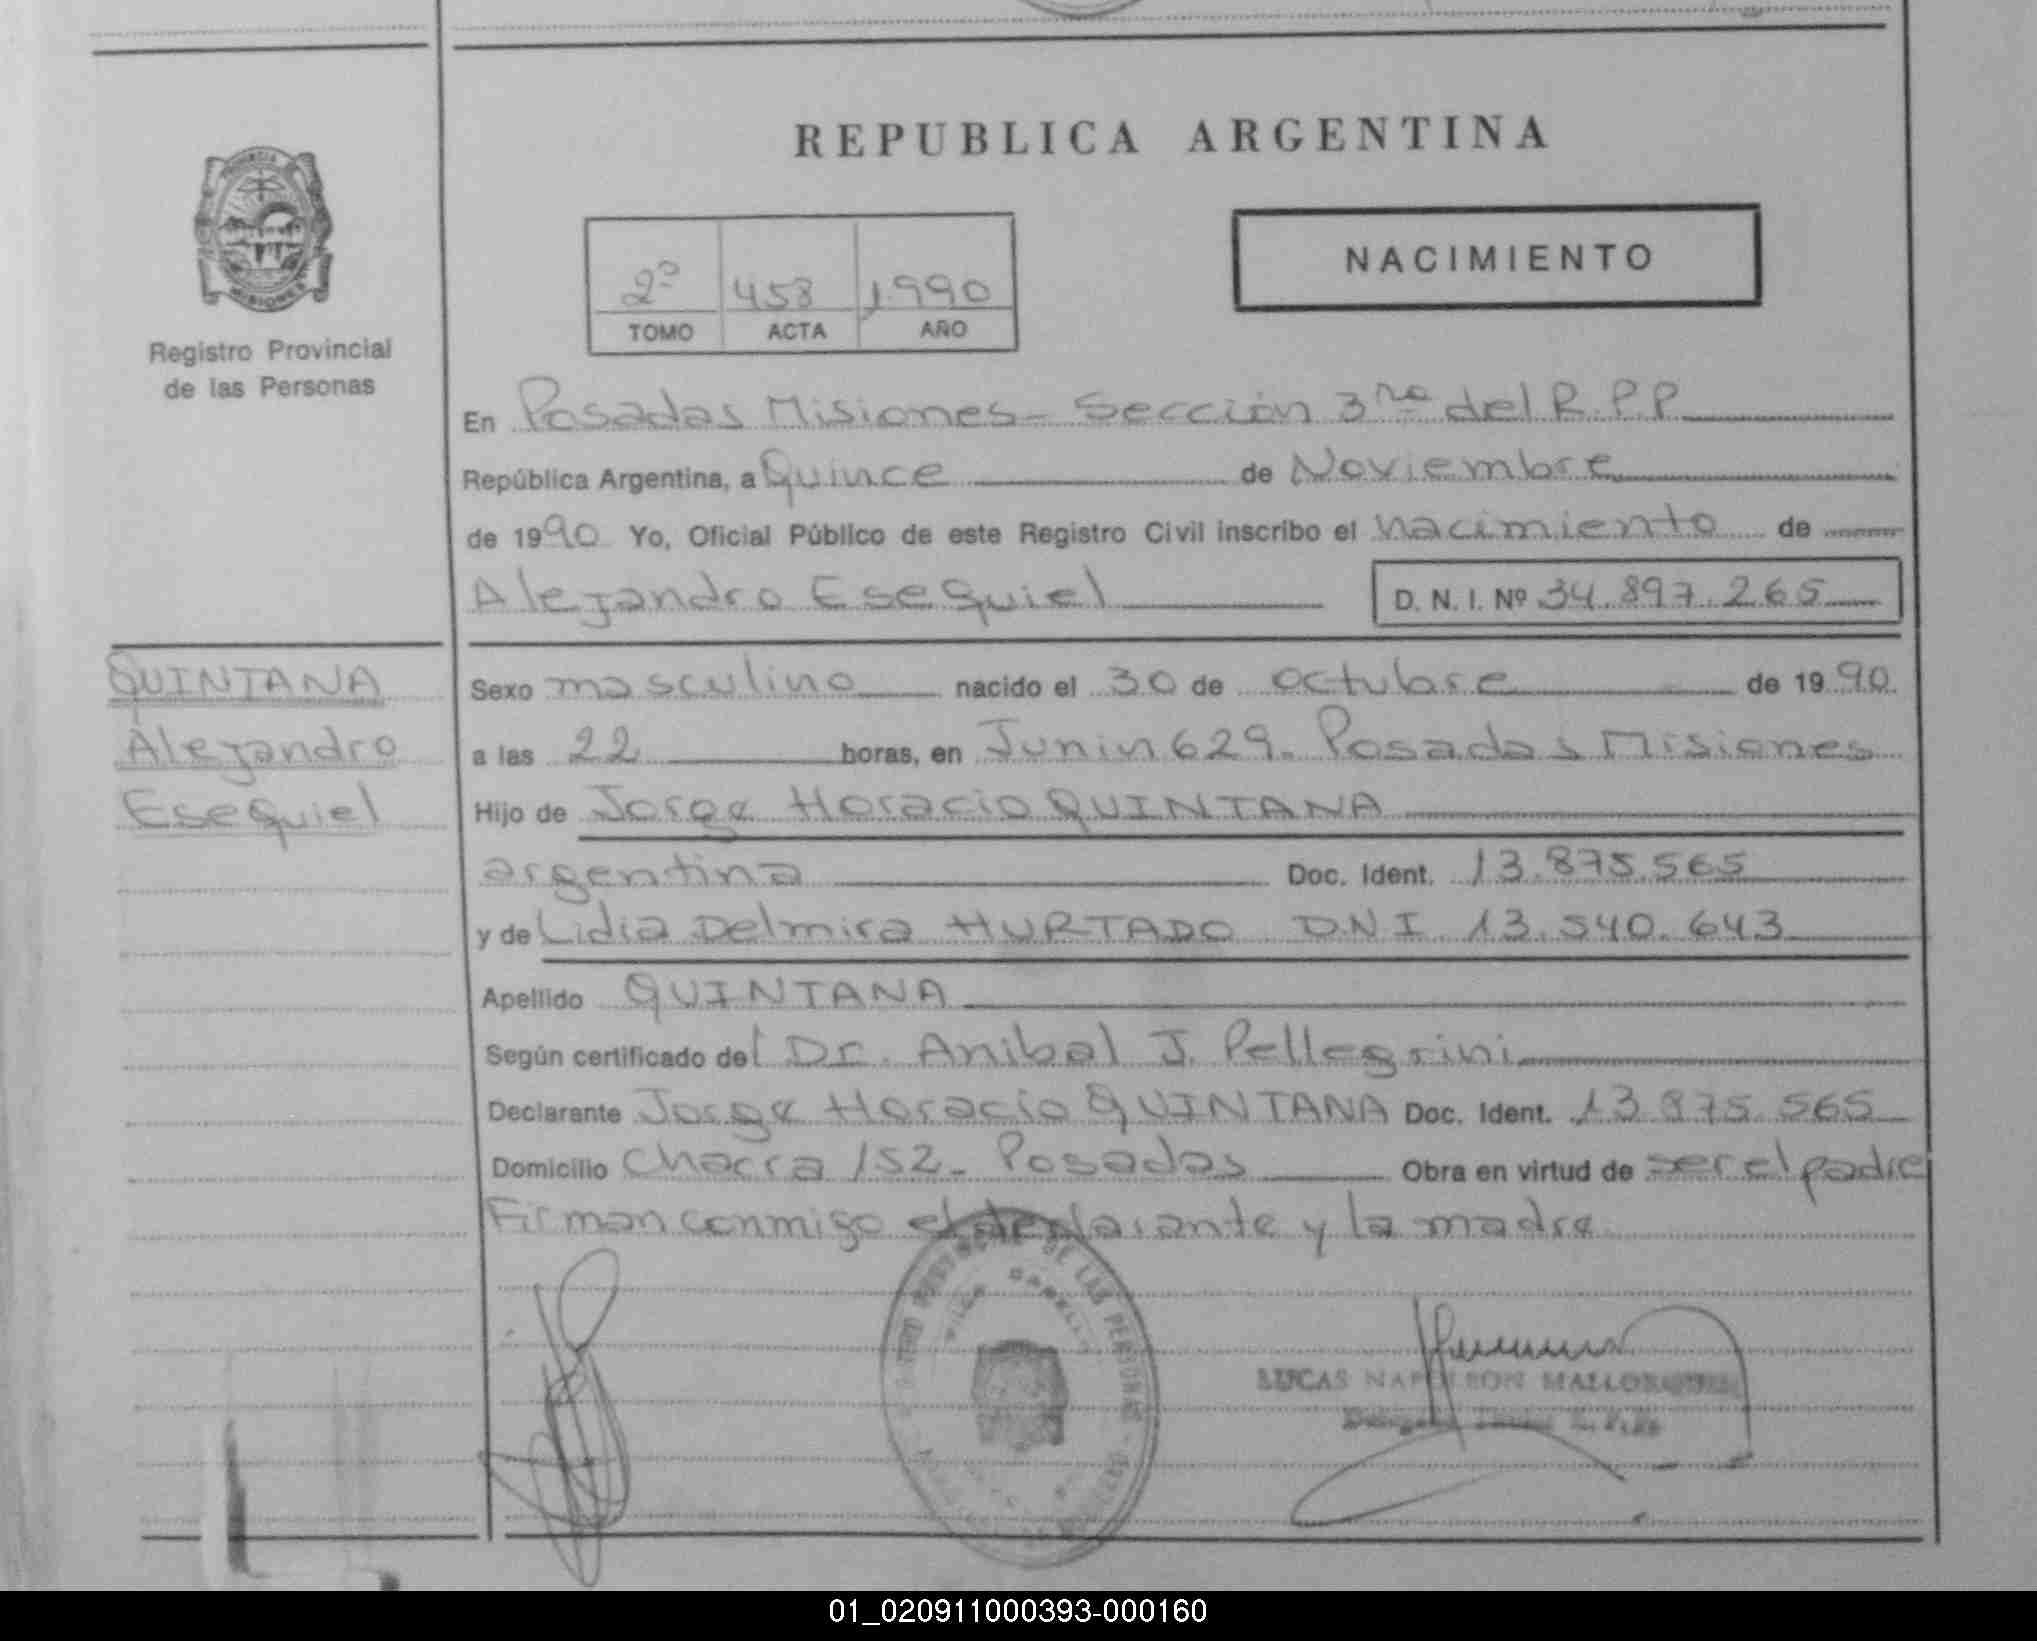 REPUBLICA ARGENTINA
NACIMIENTO
2º 458 1990
TOMO ACTA AÑO
MISIONES
Registro Provincial
de las Personas
En Posadas Misiones - Sección 3ra del R.P.P.
República Argentina, a Quince de Noviembre
de 1990 Yo, Oficial Público de este Registro Civil inscribo el nacimiento de
Alejandro Esequiel D. N. I. Nº 34.897.265
QUINTANA
Alejandro
Esequiel
Sexo masculino nacido el 30 de octubre de 1990
a las 22 horas, en Junin 629. Posadas Misiones
Hijo de Jorge Horacio QUINTANA
argentina Doc. Ident. 13.875.565
y de Lidia Delmira HURTADO DNI 13.540.643
Apellido QUINTANA
Según certificado del Dr. Anibal J. Pellegrini
Declarante Jorge Horacio QUINTANA Doc. Ident. 13.875.565
Domicilio Chacra 152 - Posadas Obra en virtud de ser el padre
Firman conmigo el declarante y la madre
DE LAS PERSONAS
LUCAS NAPOLEON
01_020911000393-000160